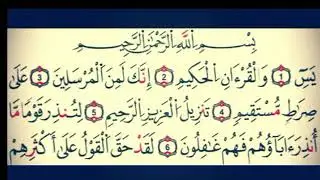 بِسْمِ اللَّهِ الرَّحْمَٰنِ الرَّحِيمِ
يسٓ ١ وَالْقُرْءَانِ الْحَكِيمِ ٢ إِنَّكَ لَمِنَ الْمُرْسَلِينَ ٣ عَلَىٰ
صِرَاطٍ مُّسْتَقِيمٍ ٤ تَنزِيلَ الْعَزِيزِ الرَّحِيمِ ٥ لِتُنذِرَ قَوْمًا مَّا
أُنذِرَ ءَابَآؤُهُمْ فَهُمْ غَٰفِلُونَ ٦ لَقَدْ حَقَّ الْقَوْلُ عَلَىٰٓ أَكْثَرِهِمْ